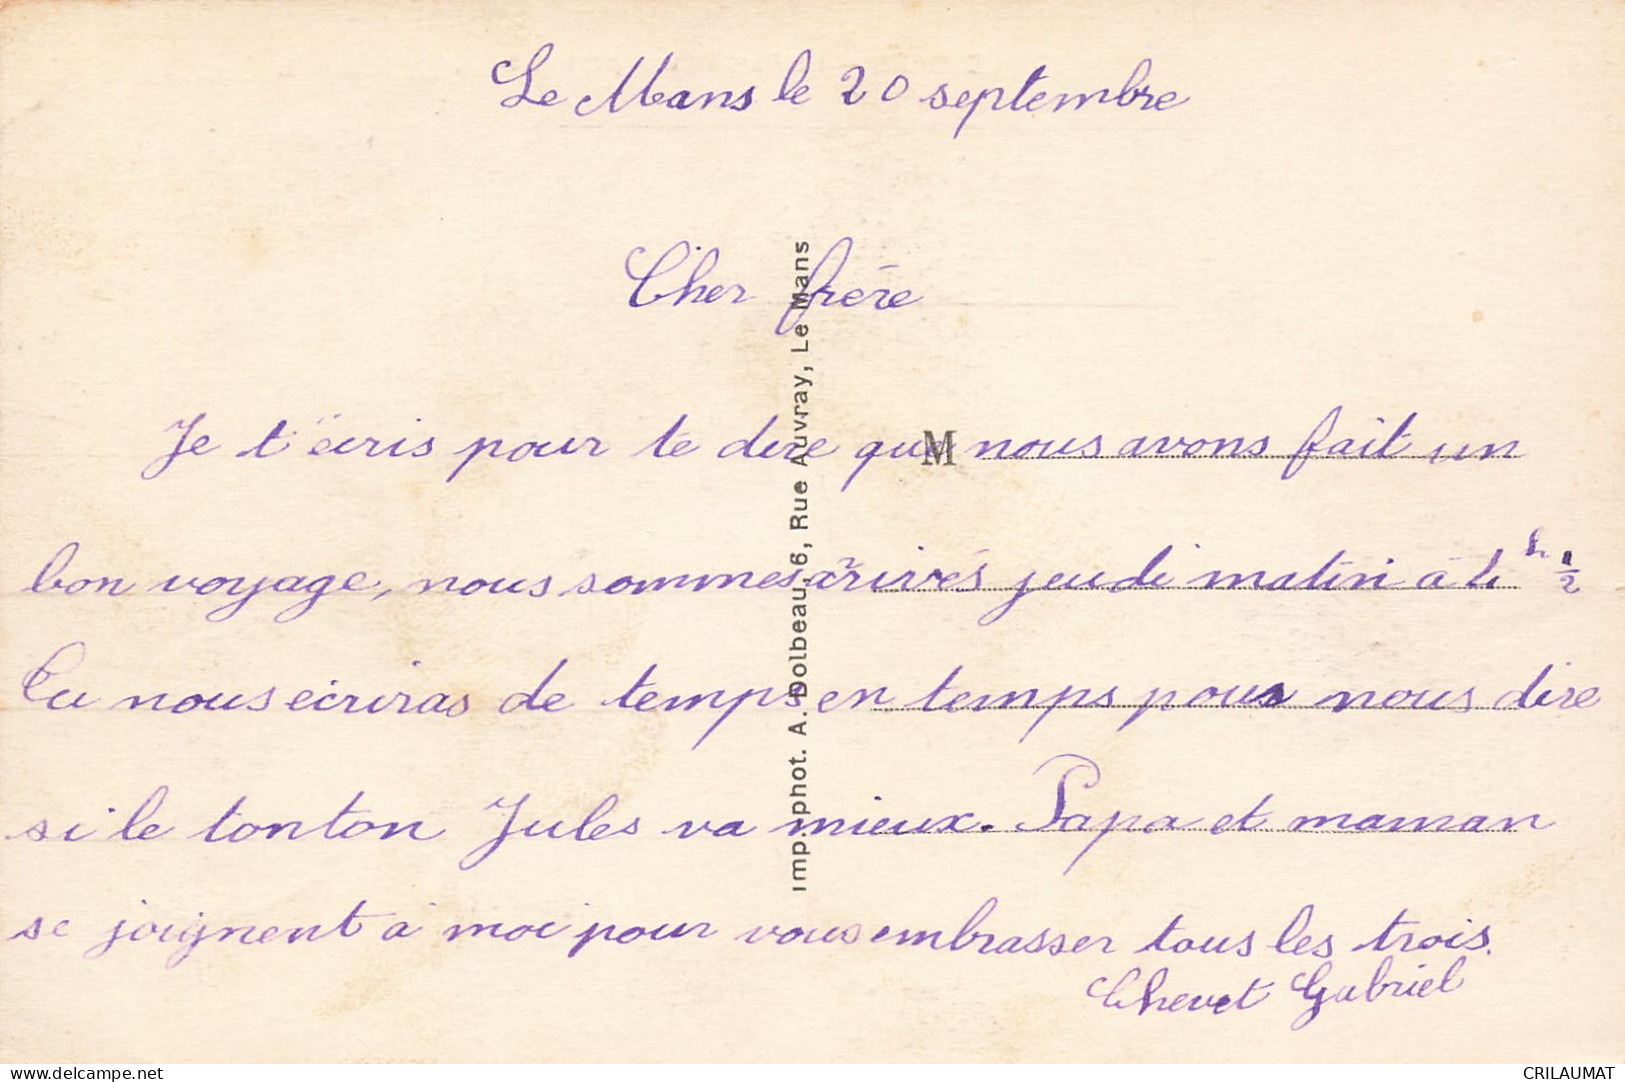 Le Mans le 20 septembre
Cher frère
Je t'écris pour te dire que nous avons fait un
bon voyage, nous sommes arrivés jeudi matin à 4 h 1/2
Tu nous écriras de temps en temps pour nous dire
si le tonton Jules va mieux. Papa et maman
se joignent à moi pour vous embrasser tous les trois.
Chevet Gabriel
Imp. phot. A. Dolbeau, 6, Rue Auvray, Le Mans
M
www.delcampe.net
CRILAUMAT